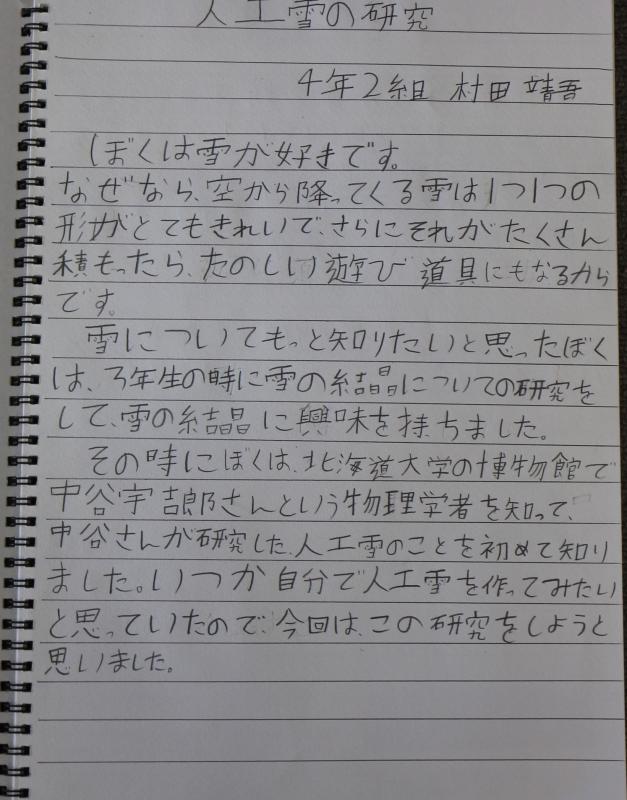 人工雪の研究
4年2組 村田 靖吾
ぼくは雪が好きです。
なぜなら、空から降ってくる雪は1つ1つの
形がとてもきれいで、さらにそれがたくさん
積もったら、たのしい遊び道具にもなるから
です。
雪についてもっと知りたいと思ったぼく
は、3年生の時に雪の結晶についての研究を
して、雪の結晶に興味を持ちました。
その時にぼくは、北海道大学の博物館で
中谷宇吉郎さんという物理学者を知って、
中谷さんが研究した、人工雪のことを初めて知り
ました。いつか自分で人工雪を作ってみたい
と思っていたので、今回は、この研究をしようと
思いました。